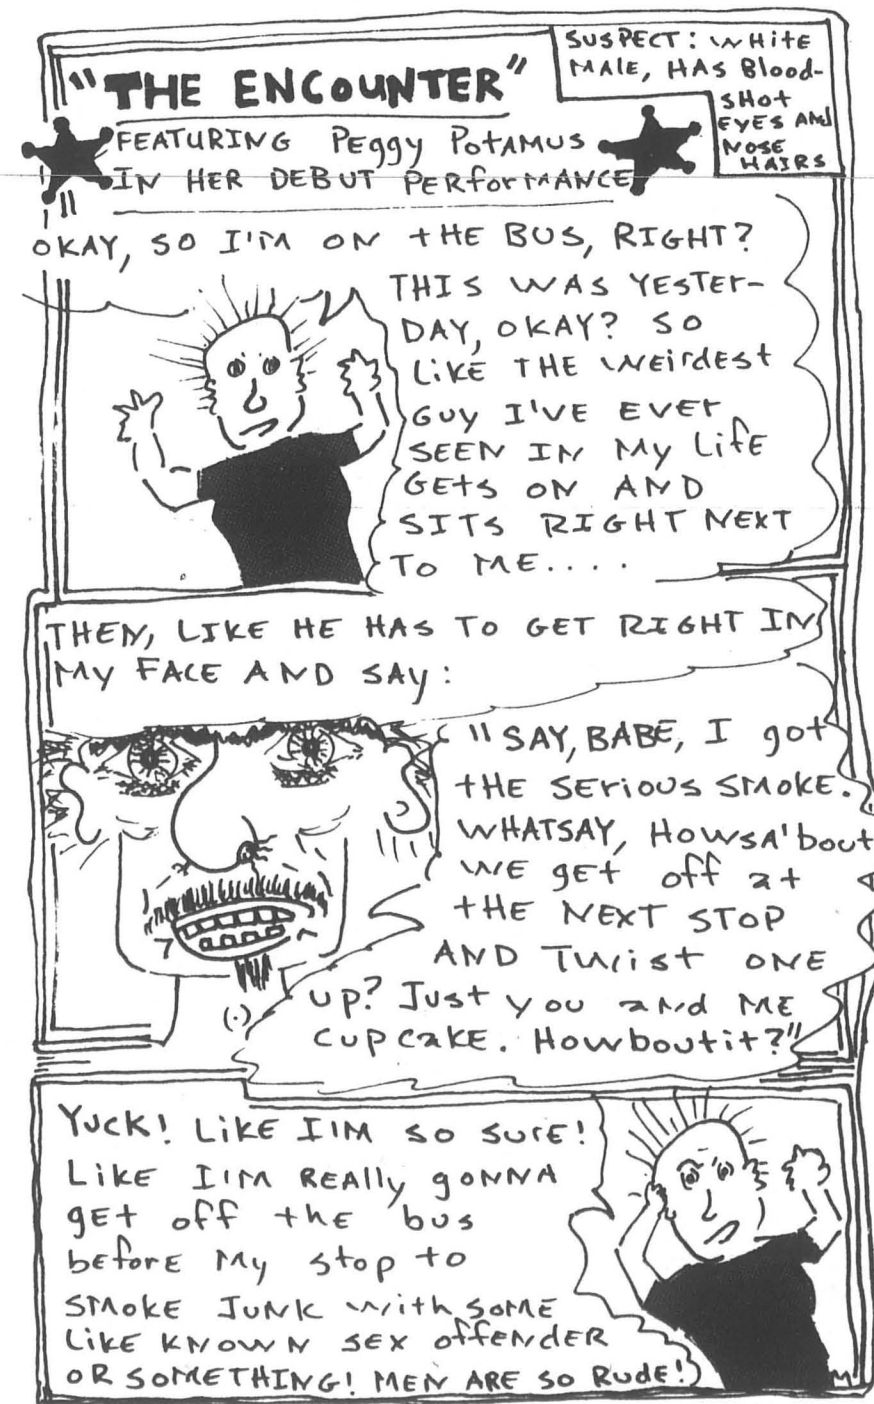 "THE ENCOUNTER"
SUSPECT: WHite
MALE, HAS Blood-
SHOt
EYES ANd
NOSE
HAIRS
FEATURING PEggy PotAMUS
IN HER DEBUT PERforMANCE
"
OKAY, SO I'M ON tHE BUS, RIGHT?
THIS WAS YESTEr-
DAY, OKAY? SO
LiKE THE WEirdEst
GUY I'VE EVEr
SEEN IN My LifE
GEtS ON AND
SITS RIGHT NEXT
TO ME....
THEN, LIKE HE HAS TO GET RIGHT IN
My FACE AND SAy:
"SAY, BABE, I got
tHE SEriOUS SMOKE.
WHATSAY, HOWSA'bout
WE gEt off at
tHE NEXT STOP
AND TWist ONE
up? Just you and ME
CupCaKE. Howboutit?"
YUCK! LiKE I'M SO SUrE!
LiKE I'M REAlly gONNA
gEt off the bus
beforE My stop to
SMOKE JUNK with SOME
LiKE KNOWN SEX OffENDER
OR SOMETHING! MEN ARE SO RudE!
M